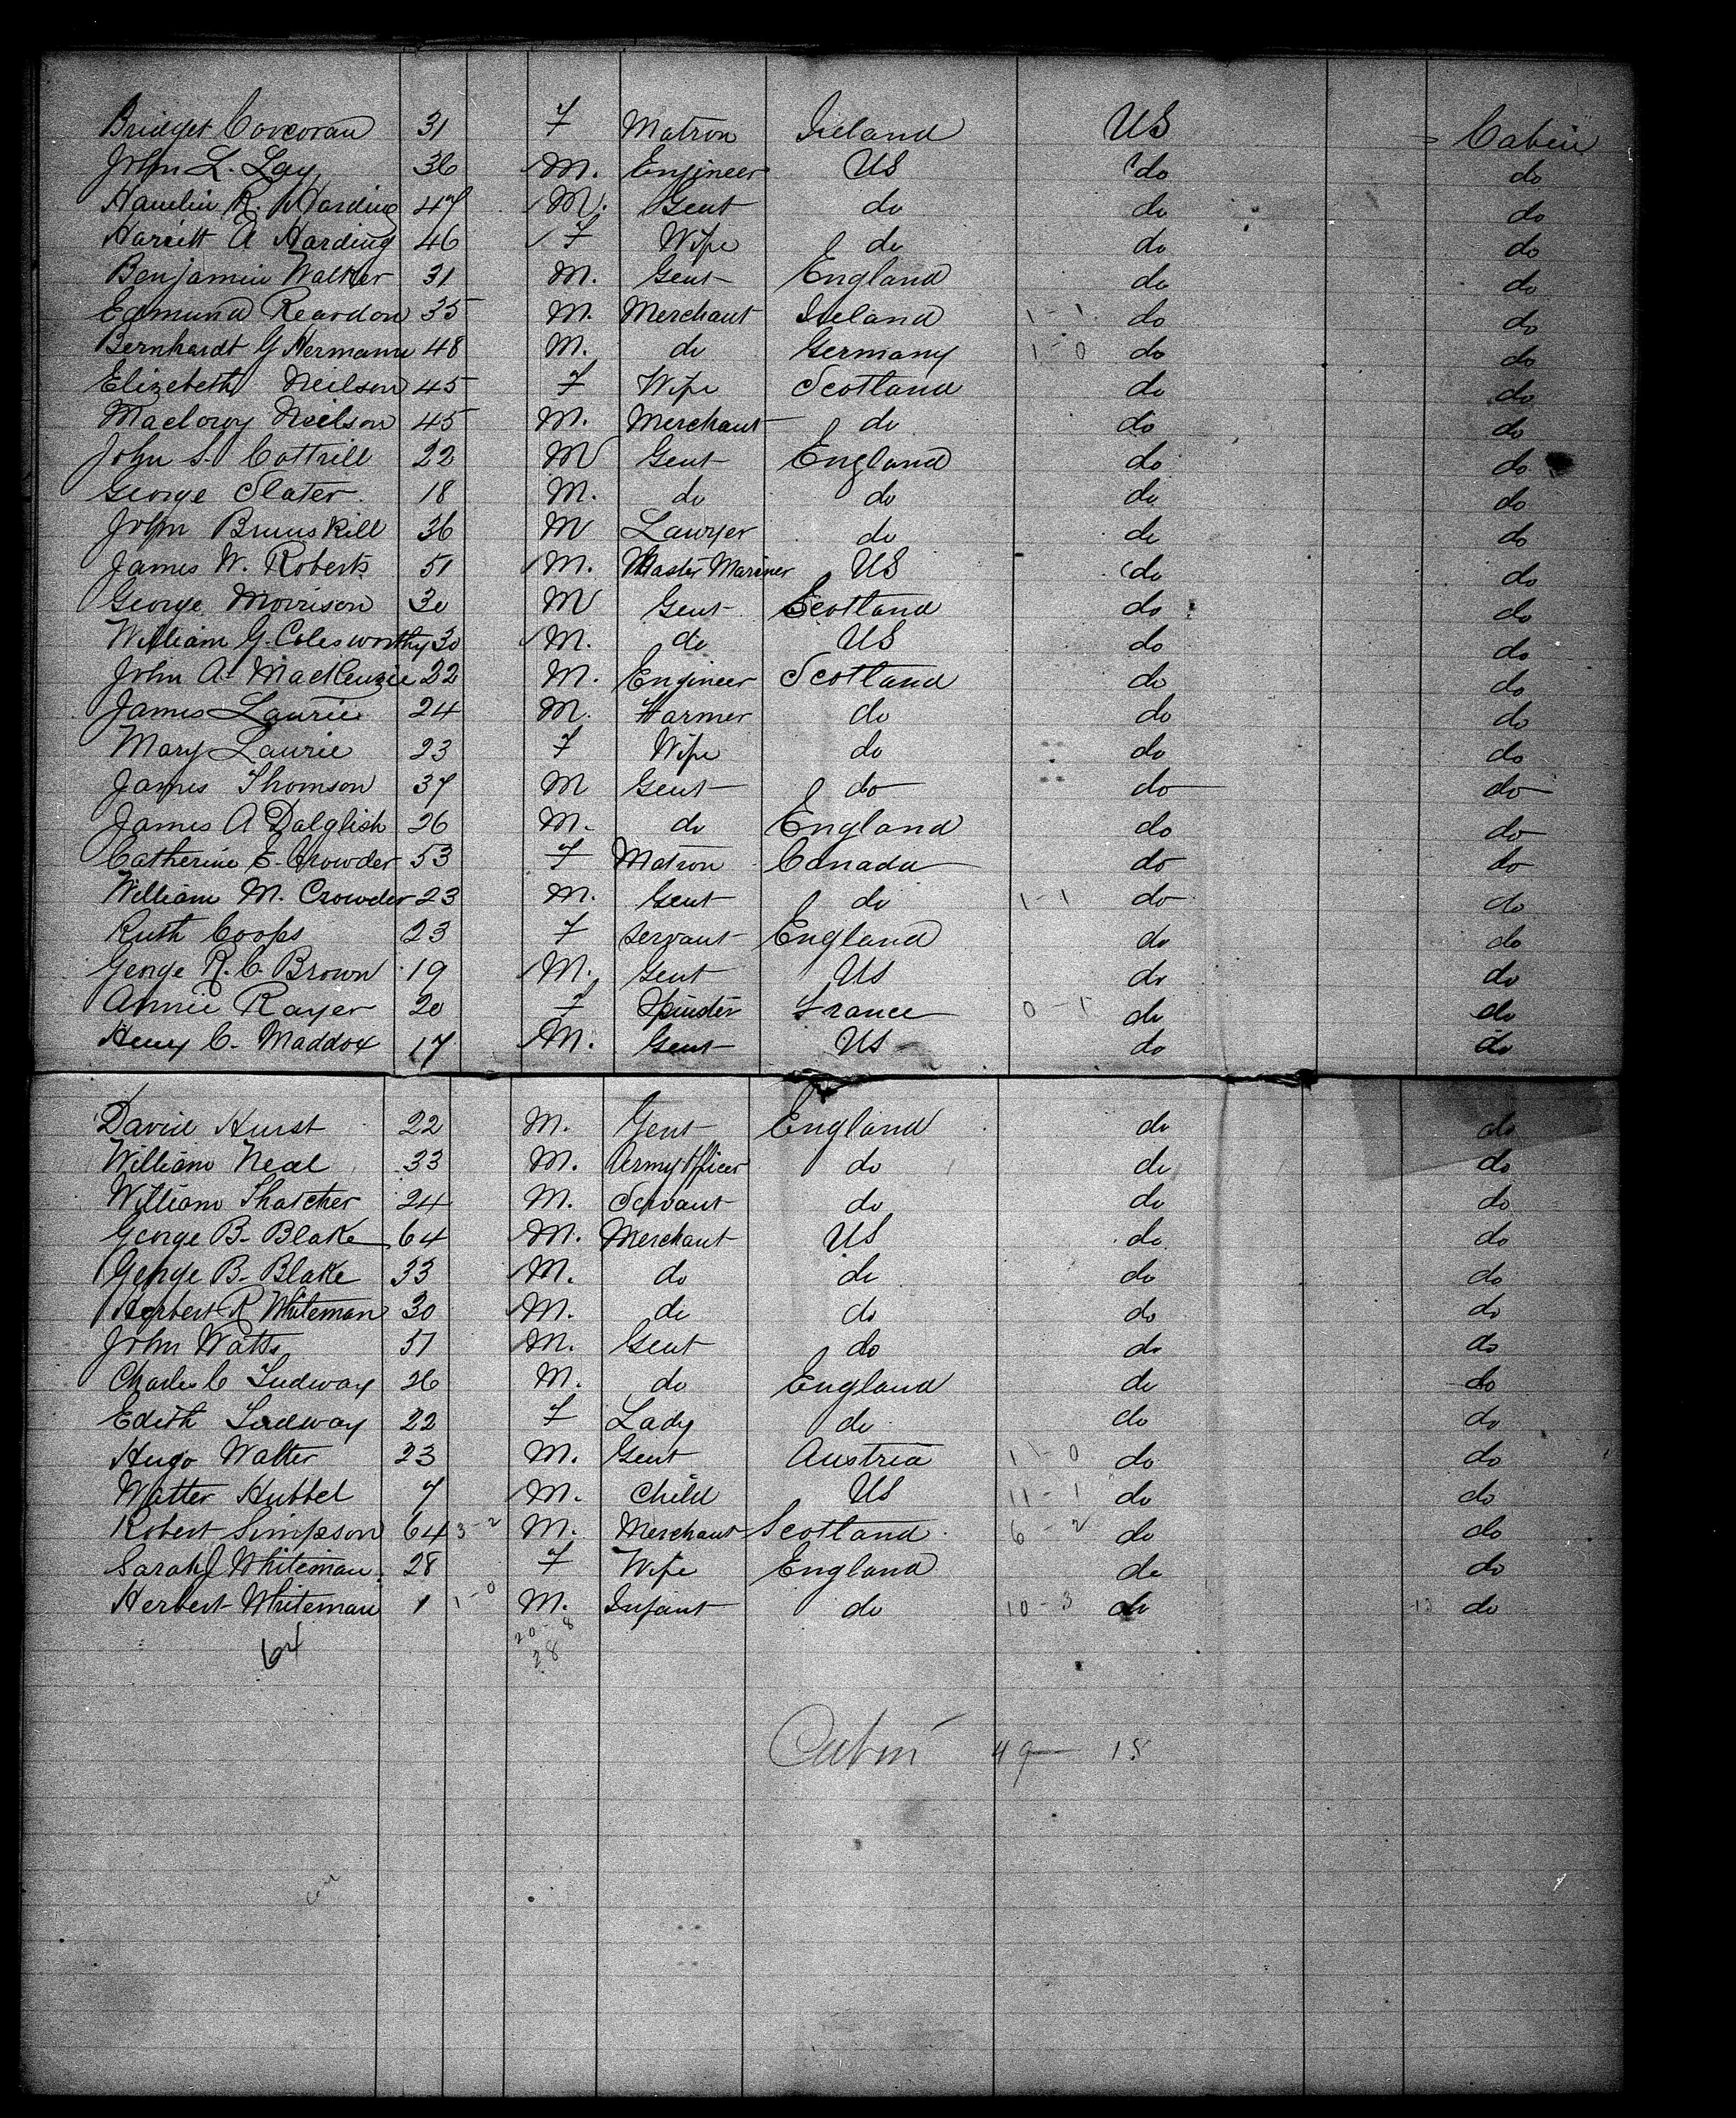 Bridget Corcoran 31 F Matron Ireland US Cabin
John L. Lay 36 M. Engineer US do do
Hamlin R. Harding 47 M. Gent do do do
Harriett A Harding 46 F Wife do do do
Benjamin Walker 31 M. Gent England do do
Edmund Reardon 35 M. Merchant Ireland 1-1 do do
Bernhardt G Hermann 48 M. do Germany 1-0 do do
Elizebeth Neilson 45 F Wife Scotland do do
Macloroy Neilson 45 M. Merchant do do do
John S. Cottrill 22 M Gent England do do
George Slater 18 M. do do do do
John Brunskill 36 M Lawyer do do do
James W. Roberts 51 M. Master Mariner US do do
George Morrison 30 M Gent Scotland do do
William G. Colesworthy 30 M. do US do do
John A. MacKenzie 22 M. Engineer Scotland do do
James Laurie 24 M. Farmer do do do
Mary Laurie 23 F Wife do do do
James Thomson 37 M Gent do do do
James A Dalglish 26 M. do England do do
Catherine E. Crowder 53 F Matron Canada do do
William M. Crowder 23 M. Gent do 1-1 do do
Ruth Coops 23 F Servant England do do
George R. C. Brown 19 M. Gent US do do
Annie Rayer 20 F Spinster France 0-1 do do
Henry C. Maddox 17 M. Gent US do do
David Hurst 22 M. Gent England do do
William Neal 33 M. Army Officer do do do
William Thatcher 24 M. Servant do do do
George B. Blake 64 M. Merchant US do do
George B. Blake 33 M. do do do do
Herbert R Whiteman 30 M. do do do do
John Watts 51 M. Gent do do do
Charles C Tudway 26 M. do England do do
Edith Tudway 22 F Lady do do do
Hugo Walter 23 M. Gent Austria 1-0 do do
Walter Hubbel 7 M. Child US 11-1 do do
Robert Simpson 64 3-2 M. Merchant Scotland 6-2 do do
Sarah J Whiteman 28 F Wife England do do
Herbert Whiteman 1 1-0 M. Infant do 10-3 do 13 do
64 20-8
28
Cabin 49 15